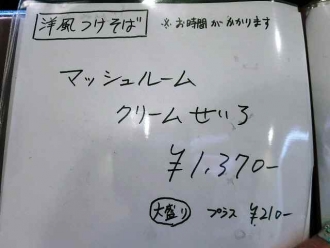 洋風つけそば ※お時間がかかります
マッシュルーム
クリームせいろ
¥1,370-
大盛り プラス ¥210-